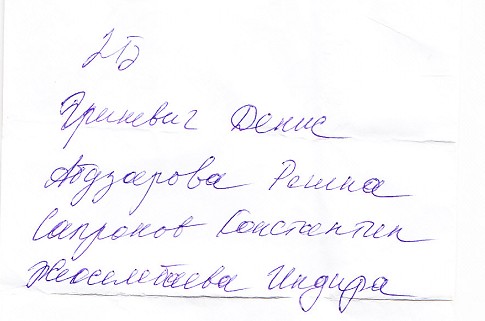 2Б
Гриневич Денис
Абдзарова Регина
Сапронов Константин
Индира